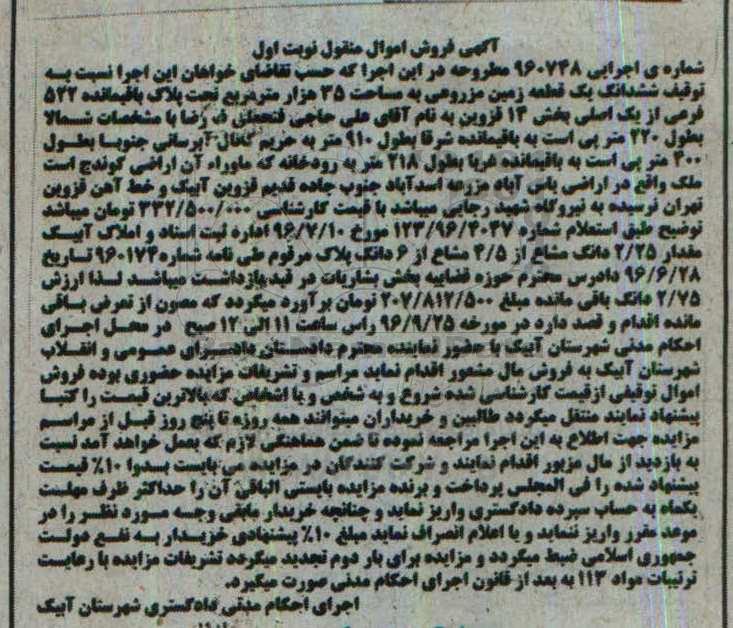 آگهی فروش اموال منقول نوبت اول
شماره ی اجرایی ۹۶۰۷۴۸ مطروحه در این اجرا که حسب تقاضای خواهان این اجرا نسبت به
توقیف ششدانگ یک قطعه زمین مزروعی به مساحت ۳۵ هزار مترمربع تحت پلاک باقیمانده ۵۲۲
فرعی از یک اصلی بخش ۱۳ قزوین به نام آقای علی حاجی فتحعلی ف رضا با مشخصات شمالا
بطول ۲۲۰ متر پی است به باقیمانده شرقا بطول ۹۱۰ متر به حریم کانال آبرسانی جنوبا بطول
۳۰۰ متر پی است به باقیمانده غربا بطول ۲۱۸ متر به رودخانه که ماوراء آن اراضی کوندج است
ملک واقع در اراضی یاس آباد مزرعه اسدآباد جنوب جاده قدیم قزوین آبیک و خط آهن قزوین
تهران نرسیده به نیروگاه شهید رجایی میباشد با قیمت کارشناسی ۳۳۲/۵۰۰/۰۰۰ تومان میباشد
توضیح طبق استعلام شماره ۱۲۳/۹۶/۴۰۳۷ مورخ ۹۶/۷/۱۰ اداره ثبت اسناد و املاک آبیک
مقدار ۲/۲۵ دانگ مشاع از ۴/۵ مشاع از ۶ دانگ پلاک مرقوم طی نامه شماره ۹۶۰۱۷۴ تاریخ
۹۶/۶/۲۸ دادرس محترم حوزه قضاییه بخش بشاریات در قید بازداشت میباشد لذا ارزش
۲/۷۵ دانگ باقی مانده مبلغ ۲۰۷/۸۱۲/۵۰۰ تومان برآورد میگردد که مصون از تعرض باقی
مانده اقدام و قصد دارد در مورخه ۹۶/۹/۲۵ راس ساعت ۱۱ الی ۱۲ صبح در محل اجرای
احکام مدنی شهرستان آبیک با حضور نماینده محترم دادستان دادسرای عمومی و انقلاب
شهرستان آبیک به فروش مال مشعور اقدام نماید مراسم و تشریفات مزایده حضوری بوده فروش
اموال توقیفی از قیمت کارشناسی شده شروع و به شخص و یا اشخاص که بالاترین قیمت را کتبا
پیشنهاد نمایند منتقل میگردد طالبین و خریداران میتوانند همه روزه تا پنج روز قبل از مراسم
مزایده جهت اطلاع به این اجرا مراجعه نموده تا ضمن هماهنگی لازم که بعمل خواهد آمد نسبت
به بازدید از مال مزبور اقدام نمایند و شرکت کنندگان در مزایده می بایست بدوا ۱۰٪ قیمت
پیشنهاد شده را فی المجلس پرداخت و برنده مزایده بایستی الباقی آن را حداکثر ظرف مهلت
یکماه به حساب سپرده دادگستری واریز نماید و چنانچه خریدار مابقی وجه مورد نظر را در
موعد مقرر واریز ننماید و یا اعلام انصراف نماید مبلغ ۱۰٪ پیشنهادی خریدار به نفع دولت
جمهوری اسلامی ضبط میگردد و مزایده برای بار دوم تجدید میگردد تشریفات مزایده با رعایت
ترتیبات مواد ۱۱۳ به بعد از قانون اجرای احکام مدنی صورت میگیرد.
اجرای احکام مدنی دادگستری شهرستان آبیک